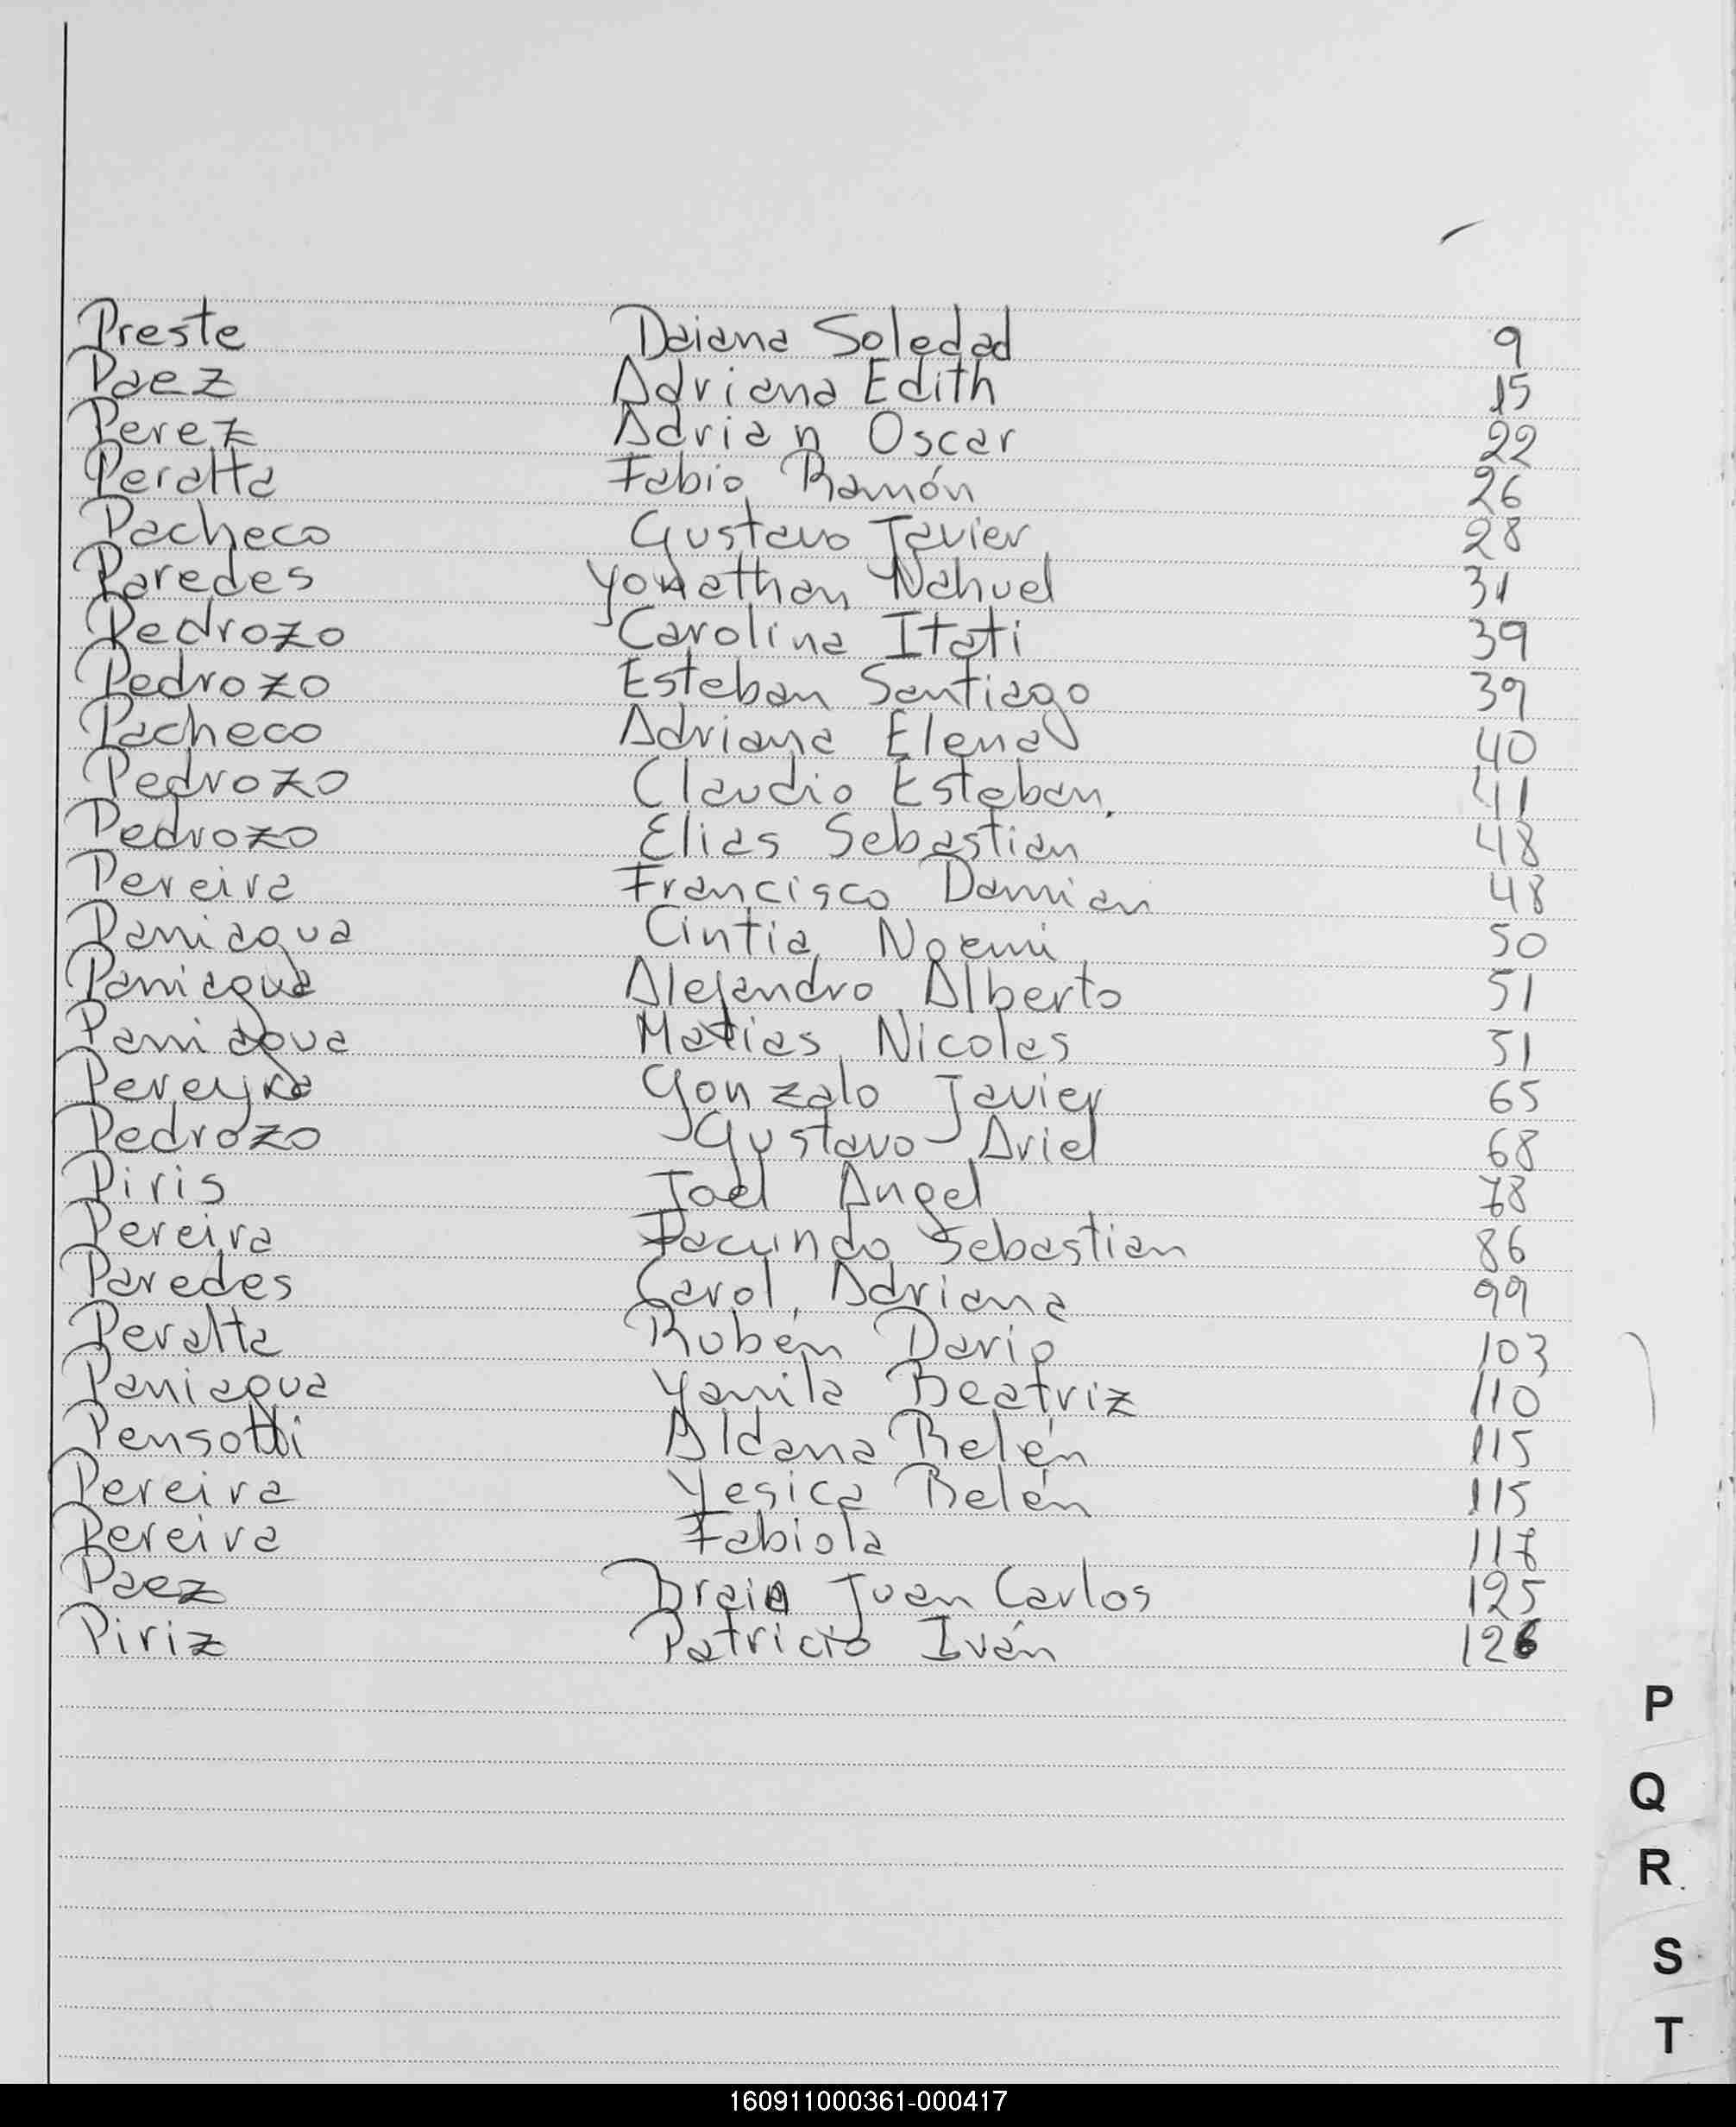 Preste Daiana Soledad 9
Paez Adriana Edith 15
Perez Adrian Oscar 22
Peralta Fabio Ramón 26
Pacheco Gustavo Javier 28
Paredes Yonathan Nahuel 31
Pedrozo Carolina Itati 39
Pedrozo Esteban Santiago 39
Pacheco Adriana Elena 40
Pedrozo Claudio Esteban. 41
Pedrozo Elias Sebastian 48
Pereira Francisco Damian 48
Paniagua Cintia Noemi 50
Paniagua Alejandro Alberto 51
Paniagua Matias Nicolas 51
Pereyra Gonzalo Javier 65
Pedrozo Gustavo Ariel 68
Piris Joel Angel 78
Pereira Facundo Sebastian 86
Paredes Carol, Adriana 99
Peralta Rubén Dario 103
Paniagua Yamila Beatriz 110
Pensotti Aldana Belén 115
Pereira Yesica Belén 115
Pereira Fabiola 117
Paez Brain Juan Carlos 125
Piriz Patricio Iván 126
P
Q
R
S
T
160911000361-000417